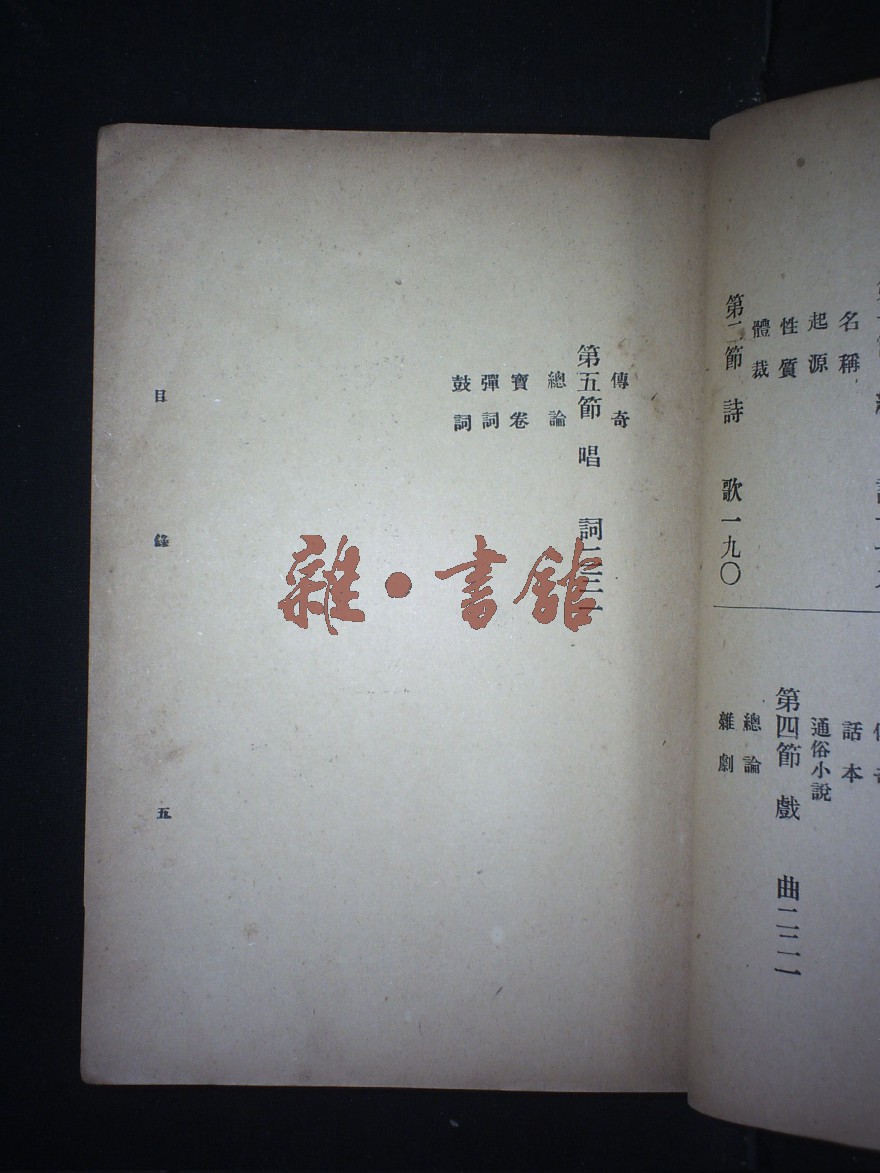 名稱
起源
性質
體裁
第二節 詩 歌一九〇
話本
通俗小說
第四節 戲 曲
總論
雜劇
傳奇
第五節 唱 詞
總論
寶卷
彈詞
鼓詞
目 錄 五
雜•書館